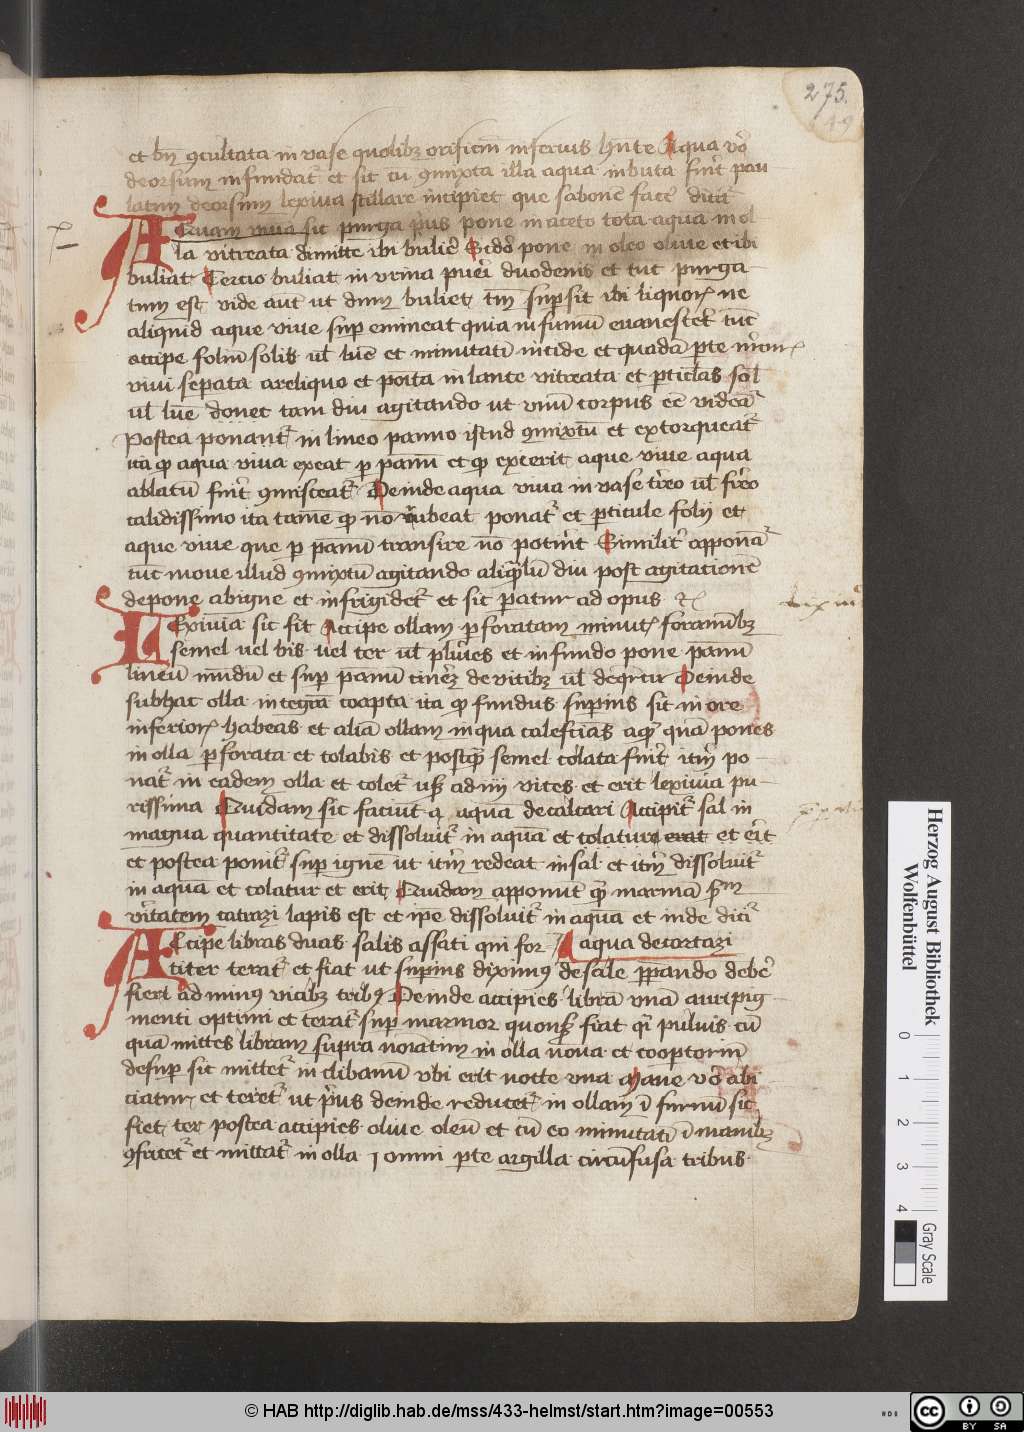 275.
49
et bn̄ ꝯcultata in vase quolibꝫ orificiū inferius hn̄te Aqua v̄o
deorsum infundat᷑ et sic cū ꝯmixta illa aqua inbuta fuīt pau
latim deorsum lexiuia stillare incipiet que sabonē facē dicit᷑
AQuam viuā sic purga p̄us pone in aceto tota aqua in ol
la vitreata dimittē ibi buliē Scdō pone in oleo oliue et ibi
buliat Tercio buliat in vrina pueri duodenis et tūc purga
tum est vide aūt ut dum buliet tm̄ suꝑsit ibi liquor ne
aliquid aque viue suꝑ emineat quia in fumū euanescet tūc
accipe foliū solis ul lūe et minutatī incide et quadā ꝑte
viui seꝑata a reliquo et poīta in lance vitreata et ꝑticlas sol
ul lūe donec tam diu agitando ut vnū corpus eē videat᷑
Postea ponant᷑ in lineo panno istud ꝯmixtū et extorqueat᷑
ita qꝫ aqua viua exeat ꝑ pannū et qꝫ exierit aque viue aqua
ablatū fuīt ꝯmisceat᷑ Deinde aqua viua in vase t̄reo ul f̄reo
calidissimo ita tamē qꝫ nō rubeat ponat᷑ et ꝑticule folij et
aque viue que ꝑ pannū transire nō potūit Similit᷑ apponat᷑
tūc moue illud ꝯmixtū agitando aliqꝫtlū diu post agitationē
depone ab igne et infrigidet᷑ et sic ꝑatur ad opus
LExiuia sic fit Accipe ollam ꝑforatam minut foraminibꝫ
semel uel bis uel ter ul pluries et in fundo pone pannū
lineū mūdū et suꝑ pannū cinerꝫ de vitibꝫ ul de q̄rcu Deinde
sub hac olla integrā coapta ita qꝫ fundus suꝑius sit in ore
inferior habeas et aliā ollam in qua calefacias aqꝫ quā pones
in olla ꝑforata et colabis et postqꝫ semel colata fuīt itm̄ po
nat᷑ in eadem olla et colet᷑ usqꝫ ad iiij vices et erit lexiuia pu
rissima Quidam sic faciūt aqua de calcari Accipit᷑ sal in
magna quantitate et dissoluit᷑ in aquā et colatur erat et erit
et postea ponit᷑ suꝑ ignē ut itm̄ redeat in sal et itm̄ dissoluit᷑
in aqua et colatur et erit Quidam apponūt
v̄itatem catrazi lapis est et ip̄e dissoluit᷑ in aqua et inde dicit᷑
ACcipe libras duas salis assati qui for aqua de cortazi
titer terat᷑ et fiat ut suꝑius diximꝰ de sale p̄parando debet
fieri ad minꝰ vicibꝫ tribꝰ Deinde accipies librā vnā auripig
menti optimi et terat᷑ suꝑ marmor quousqꝫ fiat qꝫ puluis cū
quā mittes libram supra noīatim in olla noua et coopoꝛiū
desuꝑ sic mittet᷑ in clibanū vbi erit nocte vna Mane v̄o abi
ciatur et teret᷑ ut p̄us deinde reducet᷑ in ollam ī furnū sic
fiet ter postea accipies oliue oleū et cū eo minutatī ī manibꝫ
ꝯfricet᷑ et mittat᷑ in olla ī omni ꝑte argilla circūfusa tribus
Herzog August Bibliothek
Wolfenbüttel
0 1 2 3 4
Gray Scale
© HAB http://diglib.hab.de/mss/433-helmst/start.htm?image=00553
HAB
cc BY SA